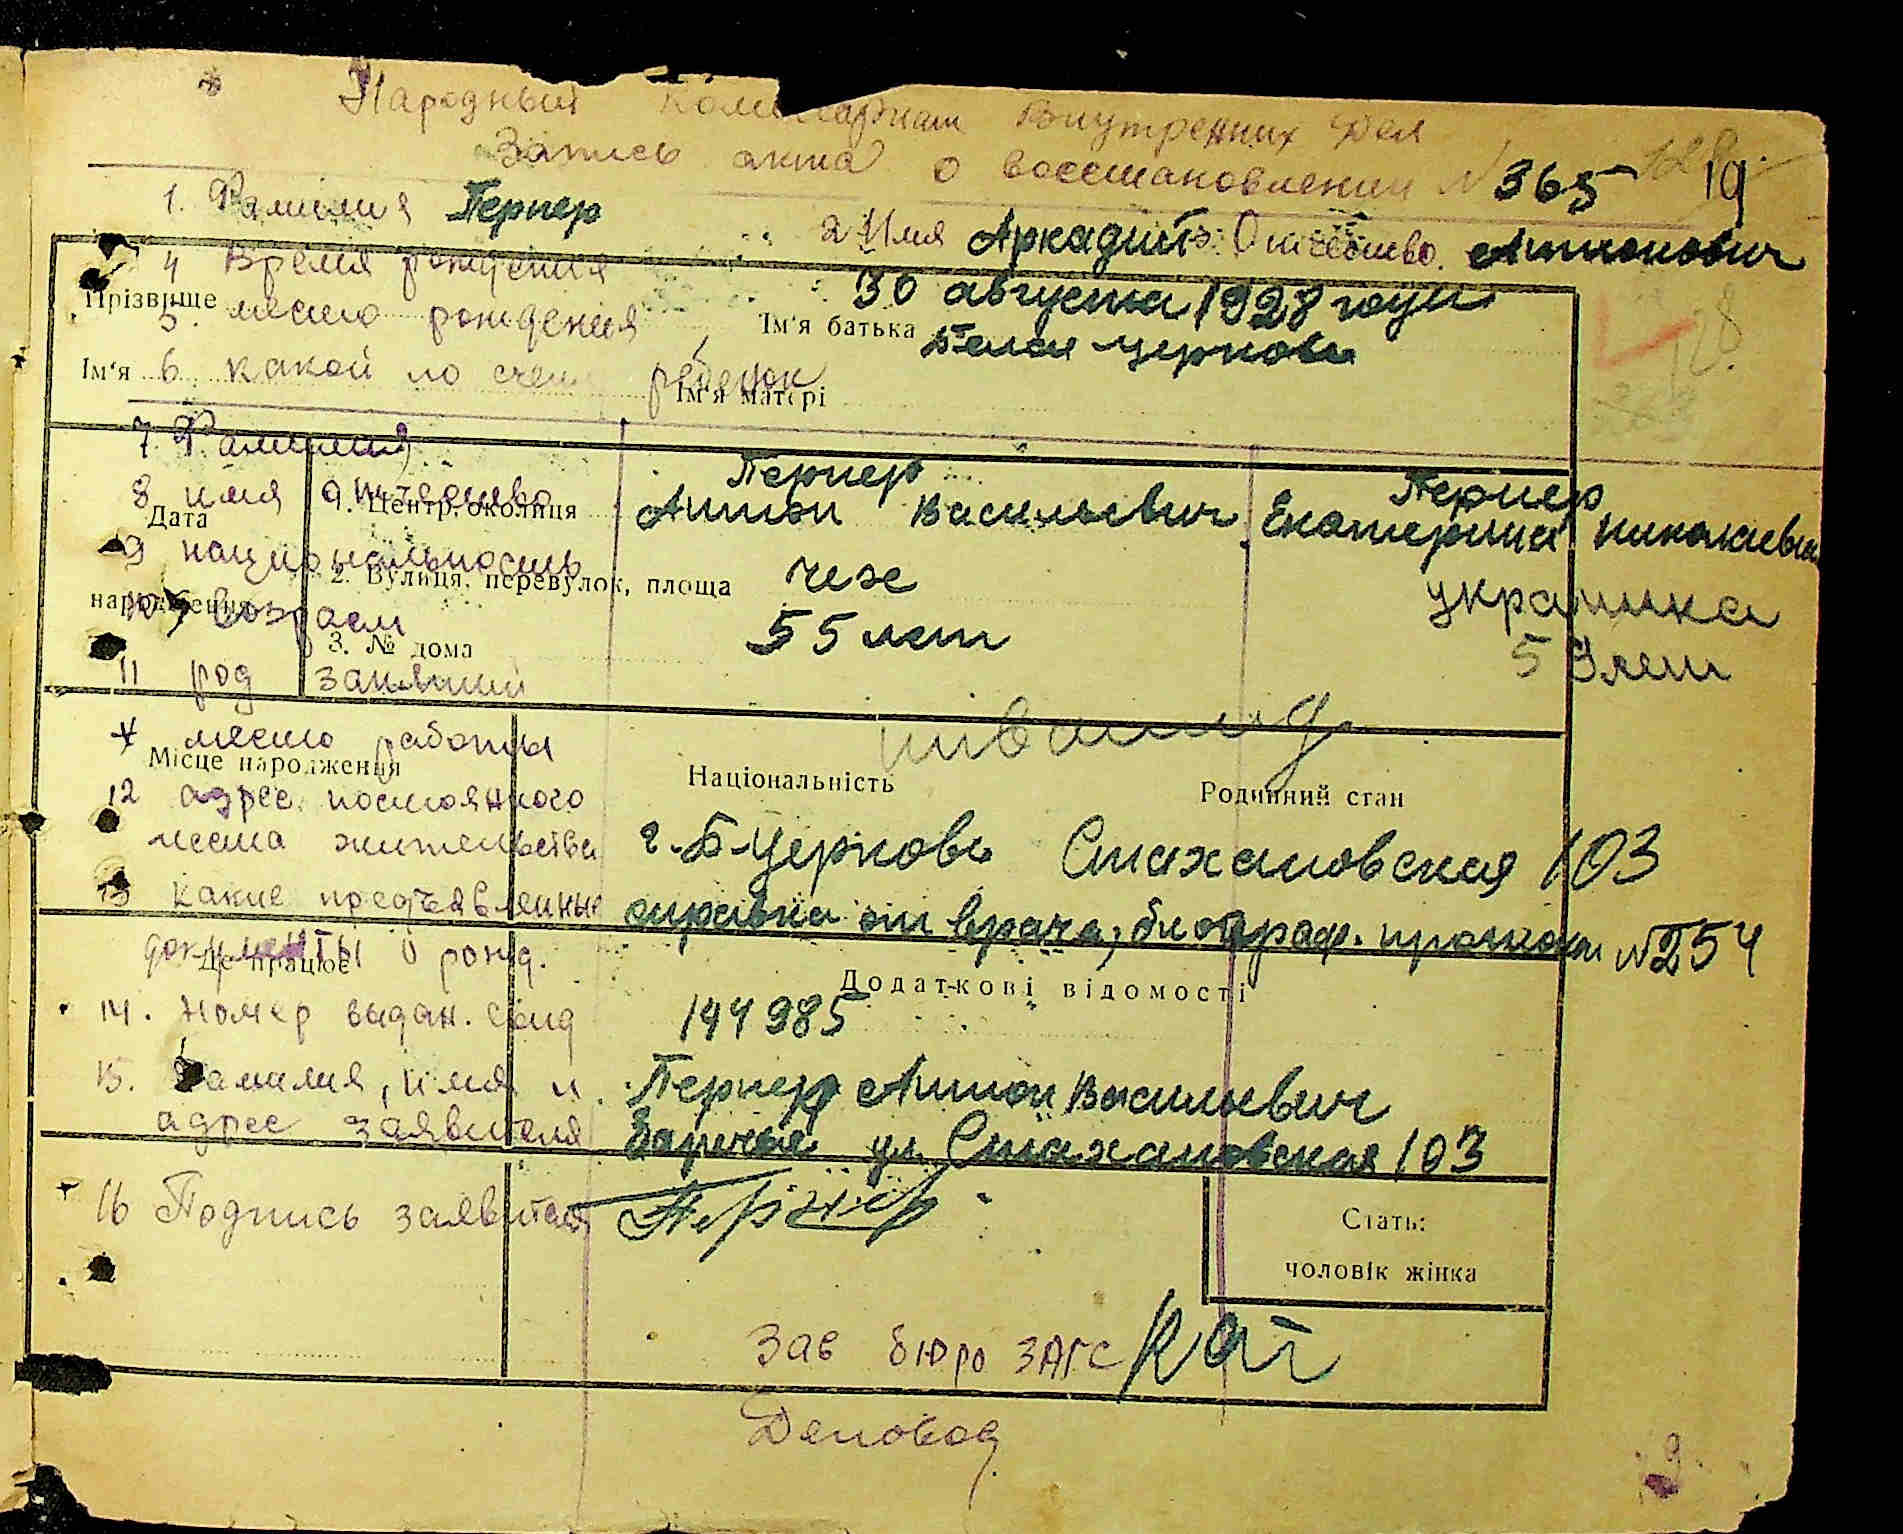 Народный Комиссариат Внутренних Дел
Запись акта о восстановлении N 365 19
1. Фамилия Пернер 2 Имя Аркадий 3. Отчество Антонович
4 Время рождения 30 августа 1928 года
Прізвище
5. место рождения Ім'я батька Белая церковь
Ім'я 6. какой по счету ребенок
Ім'я матері
128
7. Фамилия Пернер Пернер
8 имя отчество Антон Васильевич Екатерина Николаевна
Дата 1. Центр, околиця
9 национальность чех украинка
народження 2. Вулиця, перевулок, площа
10 возраст 55 лет 53 лет
3. № дома
11 род занятий инвалид
место работы
Місце народження Національність Родинний стан
12 адрес постоянного
места жительства г. Б-Церковь Стахановская 103
13 какие предъявленные справка от врача, биограф. протокол N 254
документы о рожд.
Де працює Додаткові відомості
14. номер выдан. свид 144985
15. Фамилия, имя и Пернер Антон Васильевич
адрес заявителя Заречье ул. Стахановская 103
16 Подпись заявителя Пернер
Стать:
чоловік жінка
Зав бюро ЗАГС
Деловод
9